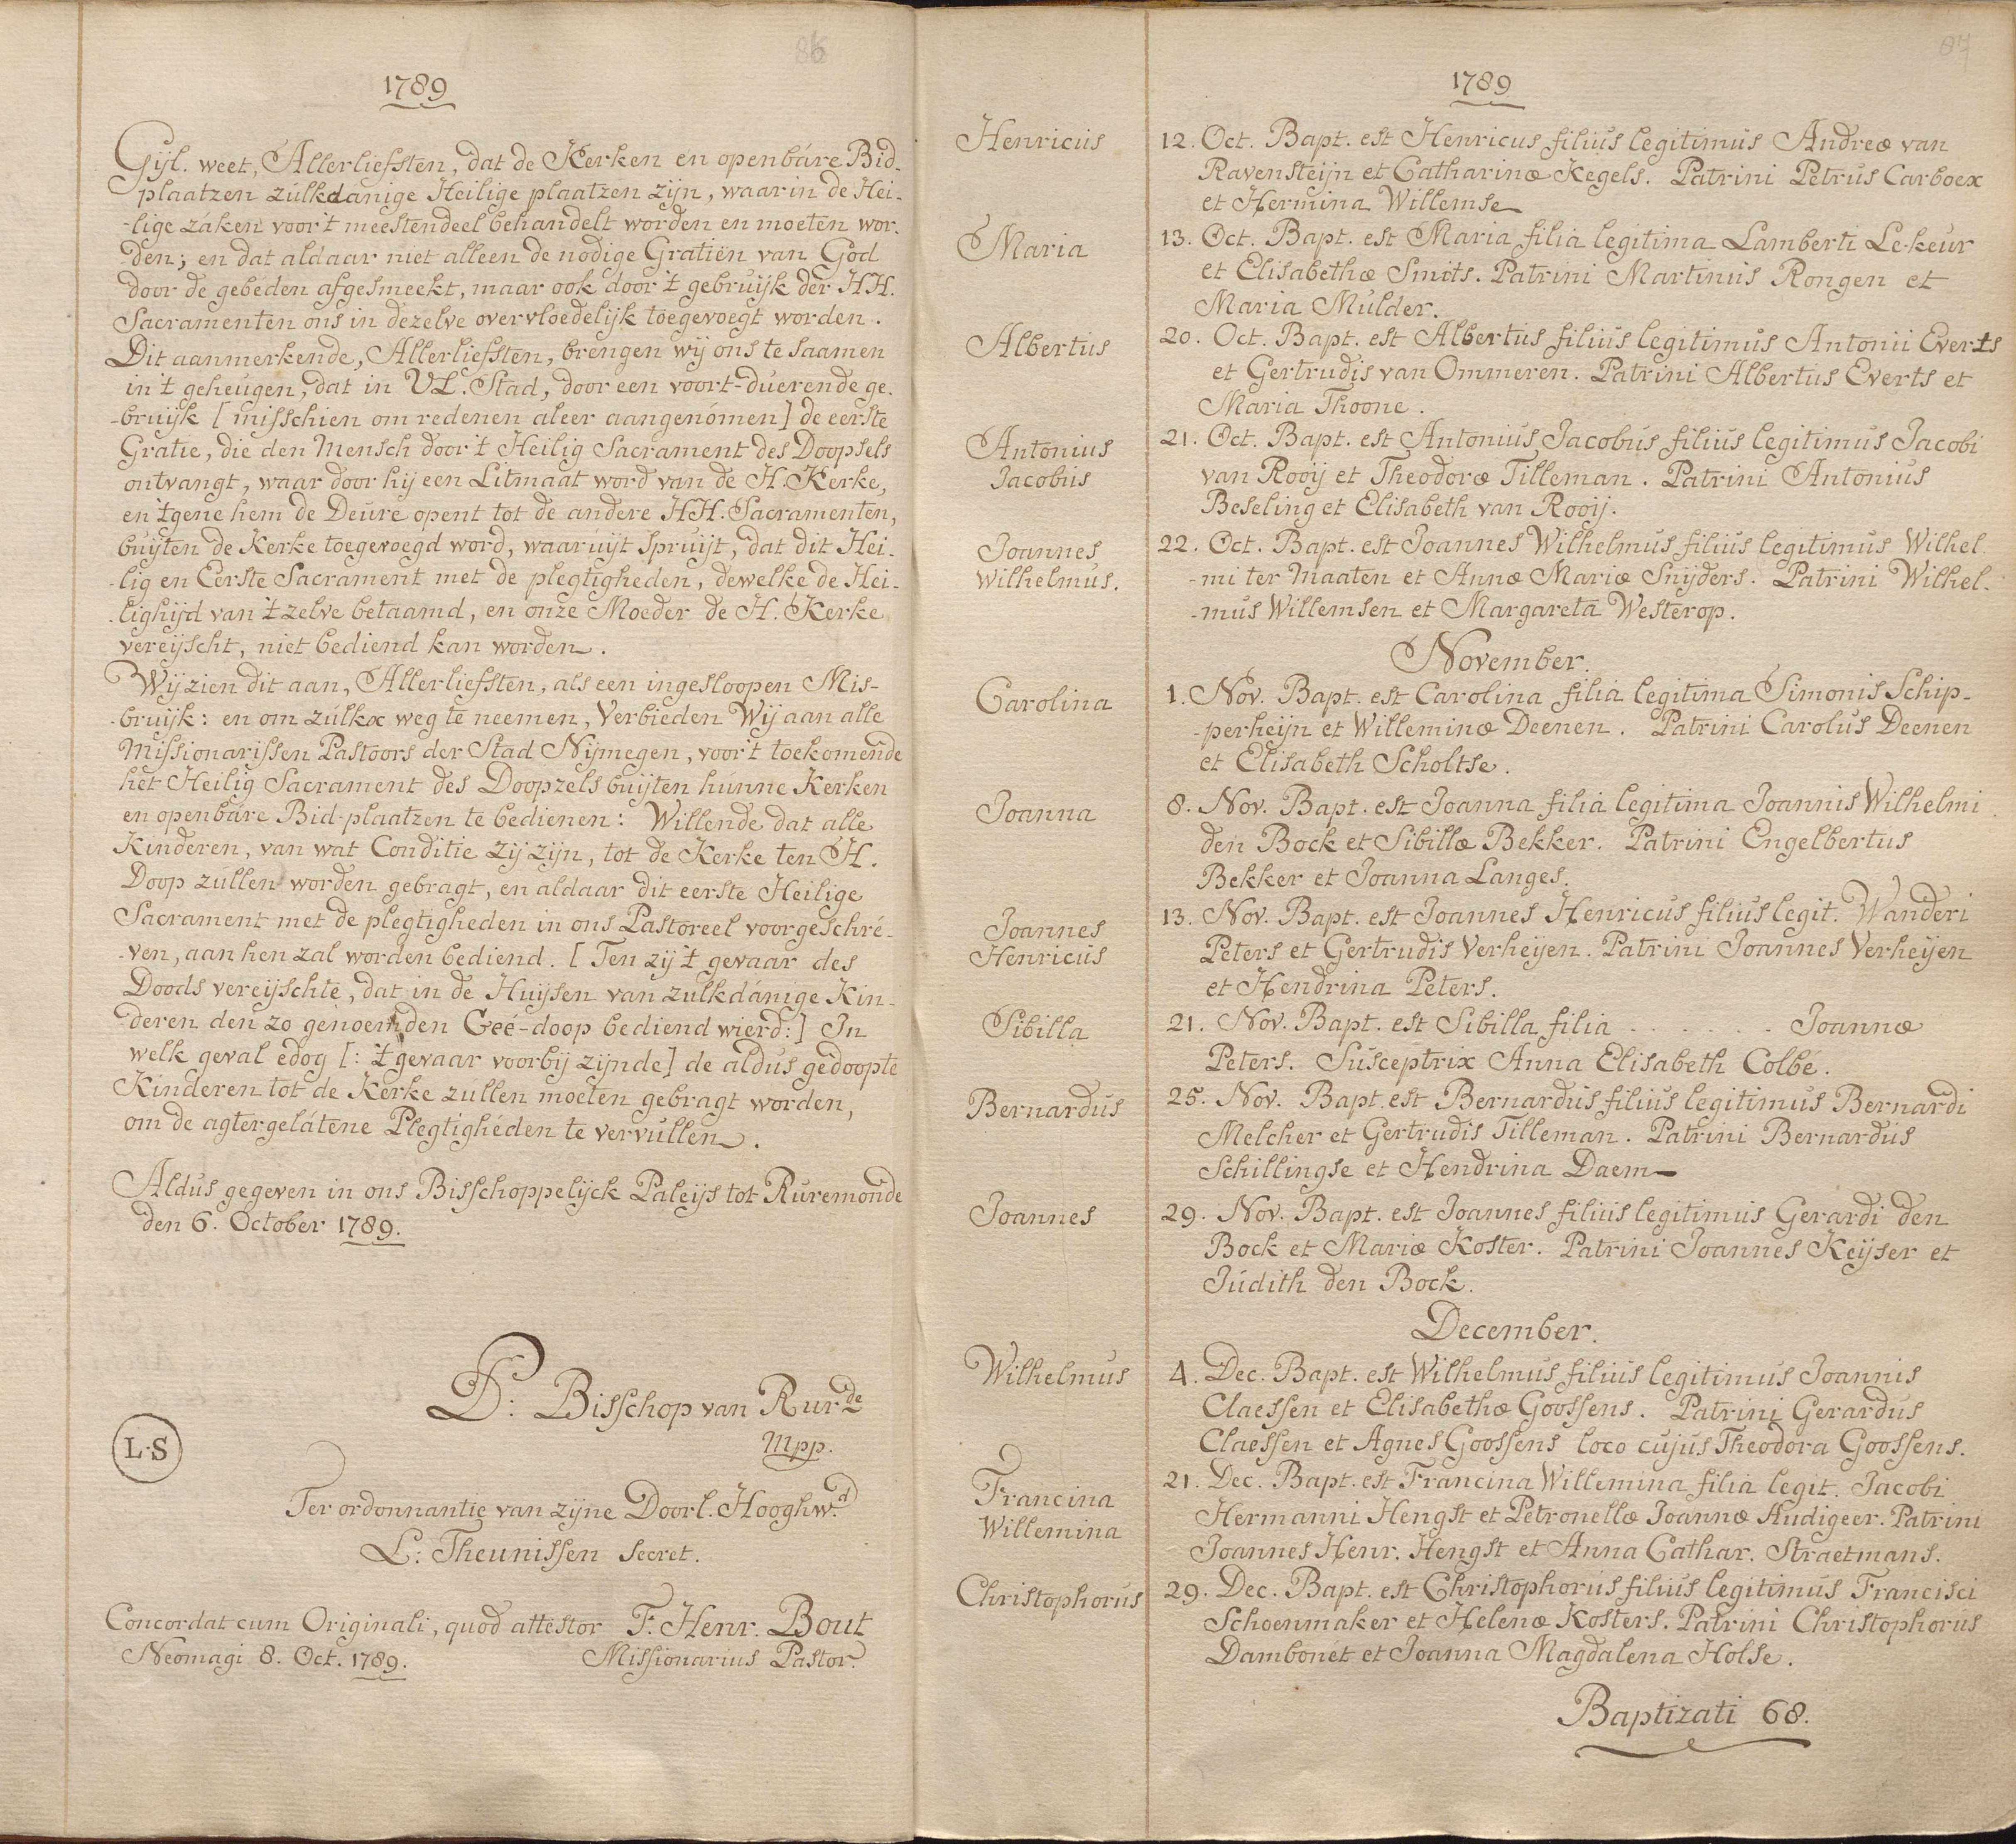 86
1789
Gijl. weet, Allerliefsten, dat de Kerken en openbáre Bid-
plaatzen zúlkdanige Heilige plaatzen zijn, waar in de Hei-
-lige záken voor 't meestendeel behandelt worden en moeten wor-
den; en dat aldaar niet alleen de nodige Gratiën van God
door de gebéden afgesmeekt, maar ook door 't gebruijk der HH.
Sacramenten ons in dezelve overvloedelijk toegevoegt worden.
Dit aanmerkende, Allerliefsten, brengen wij ons te saamen
in 't geheugen, dat in UL. Stad, door een voort-duerende ge-
-bruijk [misschien om redenen aleer aangenómen] de eerste
Gratie, die den Mensch door 't Heilig Sacrament des Doopsels
ontvangt, waar door hij een Litmaat word van de H. Kerke,
en 't gene hem de Deure opent tot de andere HH. Sacramenten,
buijten de Kerke toegevoegd word, waar uijt spruijt, dat dit Hei-
-lig en Eerste Sacrament met de plegtigheden, dewelke de Hei-
-lighijd van 't zelve betaamd, en onze Moeder de H. Kerke
vereijscht, niet bediend kan worden.
Wij zien dit aan, Allerliefsten, als een ingesloopen Mis-
-bruijk: en om zúlkx weg te neemen, Verbieden Wij aan alle
Missionarissen Pastoors der Stad Nijmegen, voor 't toekomende
het Heilig Sacrament des Doopzels buijten húnne Kerken
en openbáre Bid-plaatzen te bedienen: Willende dat alle
Kinderen, van wat Conditie zij zijn, tot de Kerke ten H.
Doop zullen worden gebragt, en aldaar dit eerste Heilige
Sacrament met de plegtigheden in ons Pastoreel voorgeschré-
-ven, aan hen zal worden bediend. [Ten zij 't gevaar des
Doods vereijschte, dat in de Huijsen van zulkdánige Kin-
-deren den zo genoemden Geé-doop bediend wierd:] In
welk geval edog [: 't gevaar voorbij zijnde] de aldus gedoopte
Kinderen tot de Kerke zullen moeten gebragt worden,
om de agtergelátene Plegtighéden te vervullen.
Aldus gegeven in ons Bisschoppelijck Paleijs tot Ruremonde
den 6. October 1789.
P: Bisschop van Rur.de
Mpp.
L.S
Ter ordonnantie van zijne Doorl. Hooghw.d
L: Theunissen Secret.
Concordat cum Originali, quod attestor F. Henr. Bout
Neomagi 8. Oct. 1789. Missionarius Pastor.
87
1789
Henricus 12. Oct. Bapt. est Henricus filius legitimus Andreæ van
Ravensteijn et Catharinæ Kegels. Patrini Petrus Carboex
et Hermina Willemse
Maria 13. Oct. Bapt. est Maria filia legitima Lamberti Le-keur
et Elisabethæ Smits. Patrini Martinus Rongen et
Maria Mulder.
Albertus 20. Oct. Bapt. est Albertus filius legitimus Antonii Everts
et Gertrudis van Ommeren. Patrini Albertus Everts et
Maria Thoone.
Antonius 21. Oct. Bapt. est Antonius Jacobus filius legitimus Jacobi
Jacobus van Rooij et Theodoræ Tilleman. Patrini Antonius
Beseling et Elisabeth van Rooij.
Joannes 22. Oct. Bapt. est Joannes Wilhelmus filius legitimus Wilhel-
Wilhelmus. -mi ter Maaten et Annæ Mariæ Snijders. Patrini Wilhel-
-mus Willemsen et Margareta Westerop.
November.
Carolina 1. Nov. Bapt. est Carolina filia legitima Simonis Schip-
-perheijn et Willeminæ Deenen. Patrini Carolus Deenen
et Elisabeth Scholtse.
Joanna 8. Nov. Bapt. est Joanna filia legitima Joannis Wilhelmi
den Bock et Sibillæ Bekker. Patrini Engelbertus
Bekker et Joanna Langes.
Joannes 13. Nov. Bapt. est Joannes Henricus filius legit. Wanderi
Henricus Peters et Gertrudis Verheijen. Patrini Joannes Verheijen
et Hendrina Peters.
Sibilla 21. Nov. Bapt. est Sibilla filia . . . . . . . Joannæ
Peters. Susceptrix Anna Elisabeth Colbé.
Bernardus 25. Nov. Bapt. est Bernardus filius legitimus Bernardi
Melcher et Gertrudis Tilleman. Patrini Bernardus
Schillingse et Hendrina Daem
Joannes 29. Nov. Bapt. est Joannes filius legitimus Gerardi den
Bock et Mariæ Koster. Patrini Joannes Keijser et
Judith den Bock.
December.
Wilhelmus 4. Dec. Bapt. est Wilhelmus filius legitimus Joannis
Claessen et Elisabethæ Goossens. Patrini Gerardus
Claessen et Agnes Goossens loco cujus Theodora Goossens.
Francina 21. Dec. Bapt. est Francina Willemina filia legit. Jacobi
Willemina Hermanni Hengst et Petronellæ Joannæ Audigeer. Patrini
Joannes Henr. Hengst et Anna Cathar. Straetmans.
Christophorus 29. Dec. Bapt. est Christophorus filius legitimus Francisci
Schoenmaker et Helenæ Kosters. Patrini Christophorus
Dambonét et Joanna Magdalena Holse.
Baptizati 68.